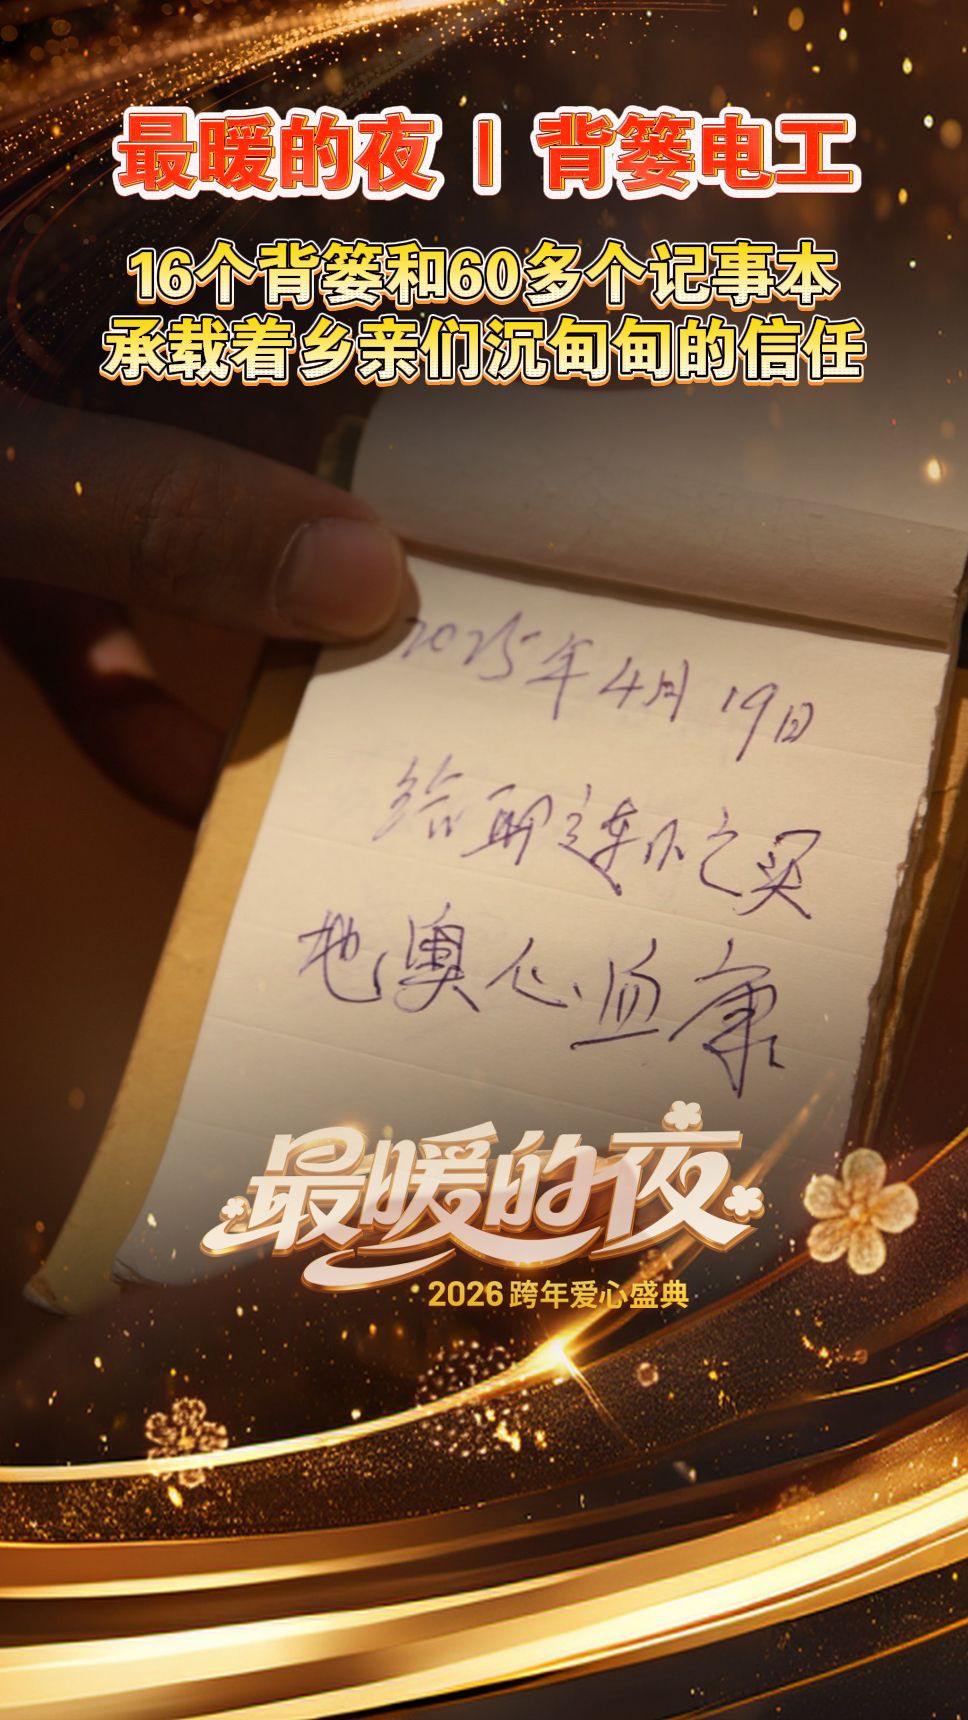 最暖的夜 | 背篓电工
16个背篓和60多个记事本
承载着乡亲们沉甸甸的信任
2025年4月19日
给
买
地奥心血康
最暖的夜
2026跨年爱心盛典